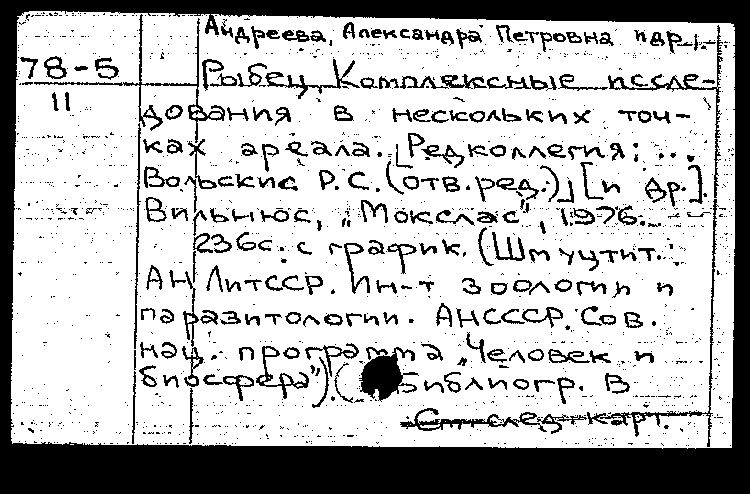 Андреева, Александра Петровна и др.
78-5
11
Рыбец. Комплексные иссле-
дования в нескольких точ-
ках ареала. [Редколлегия: ...
Вольскис Р.С. (отв.ред.)] [и др.].
Вильнюс, "Мокслас", 1976.
236с. с график. (Шмуцтит.:
АН ЛитССР. Ин-т зоологии и
паразитологии. АНСССР. Сов.
нац. программа "Человек и
биосфера"). ( Библиогр. в
См. след. карт.